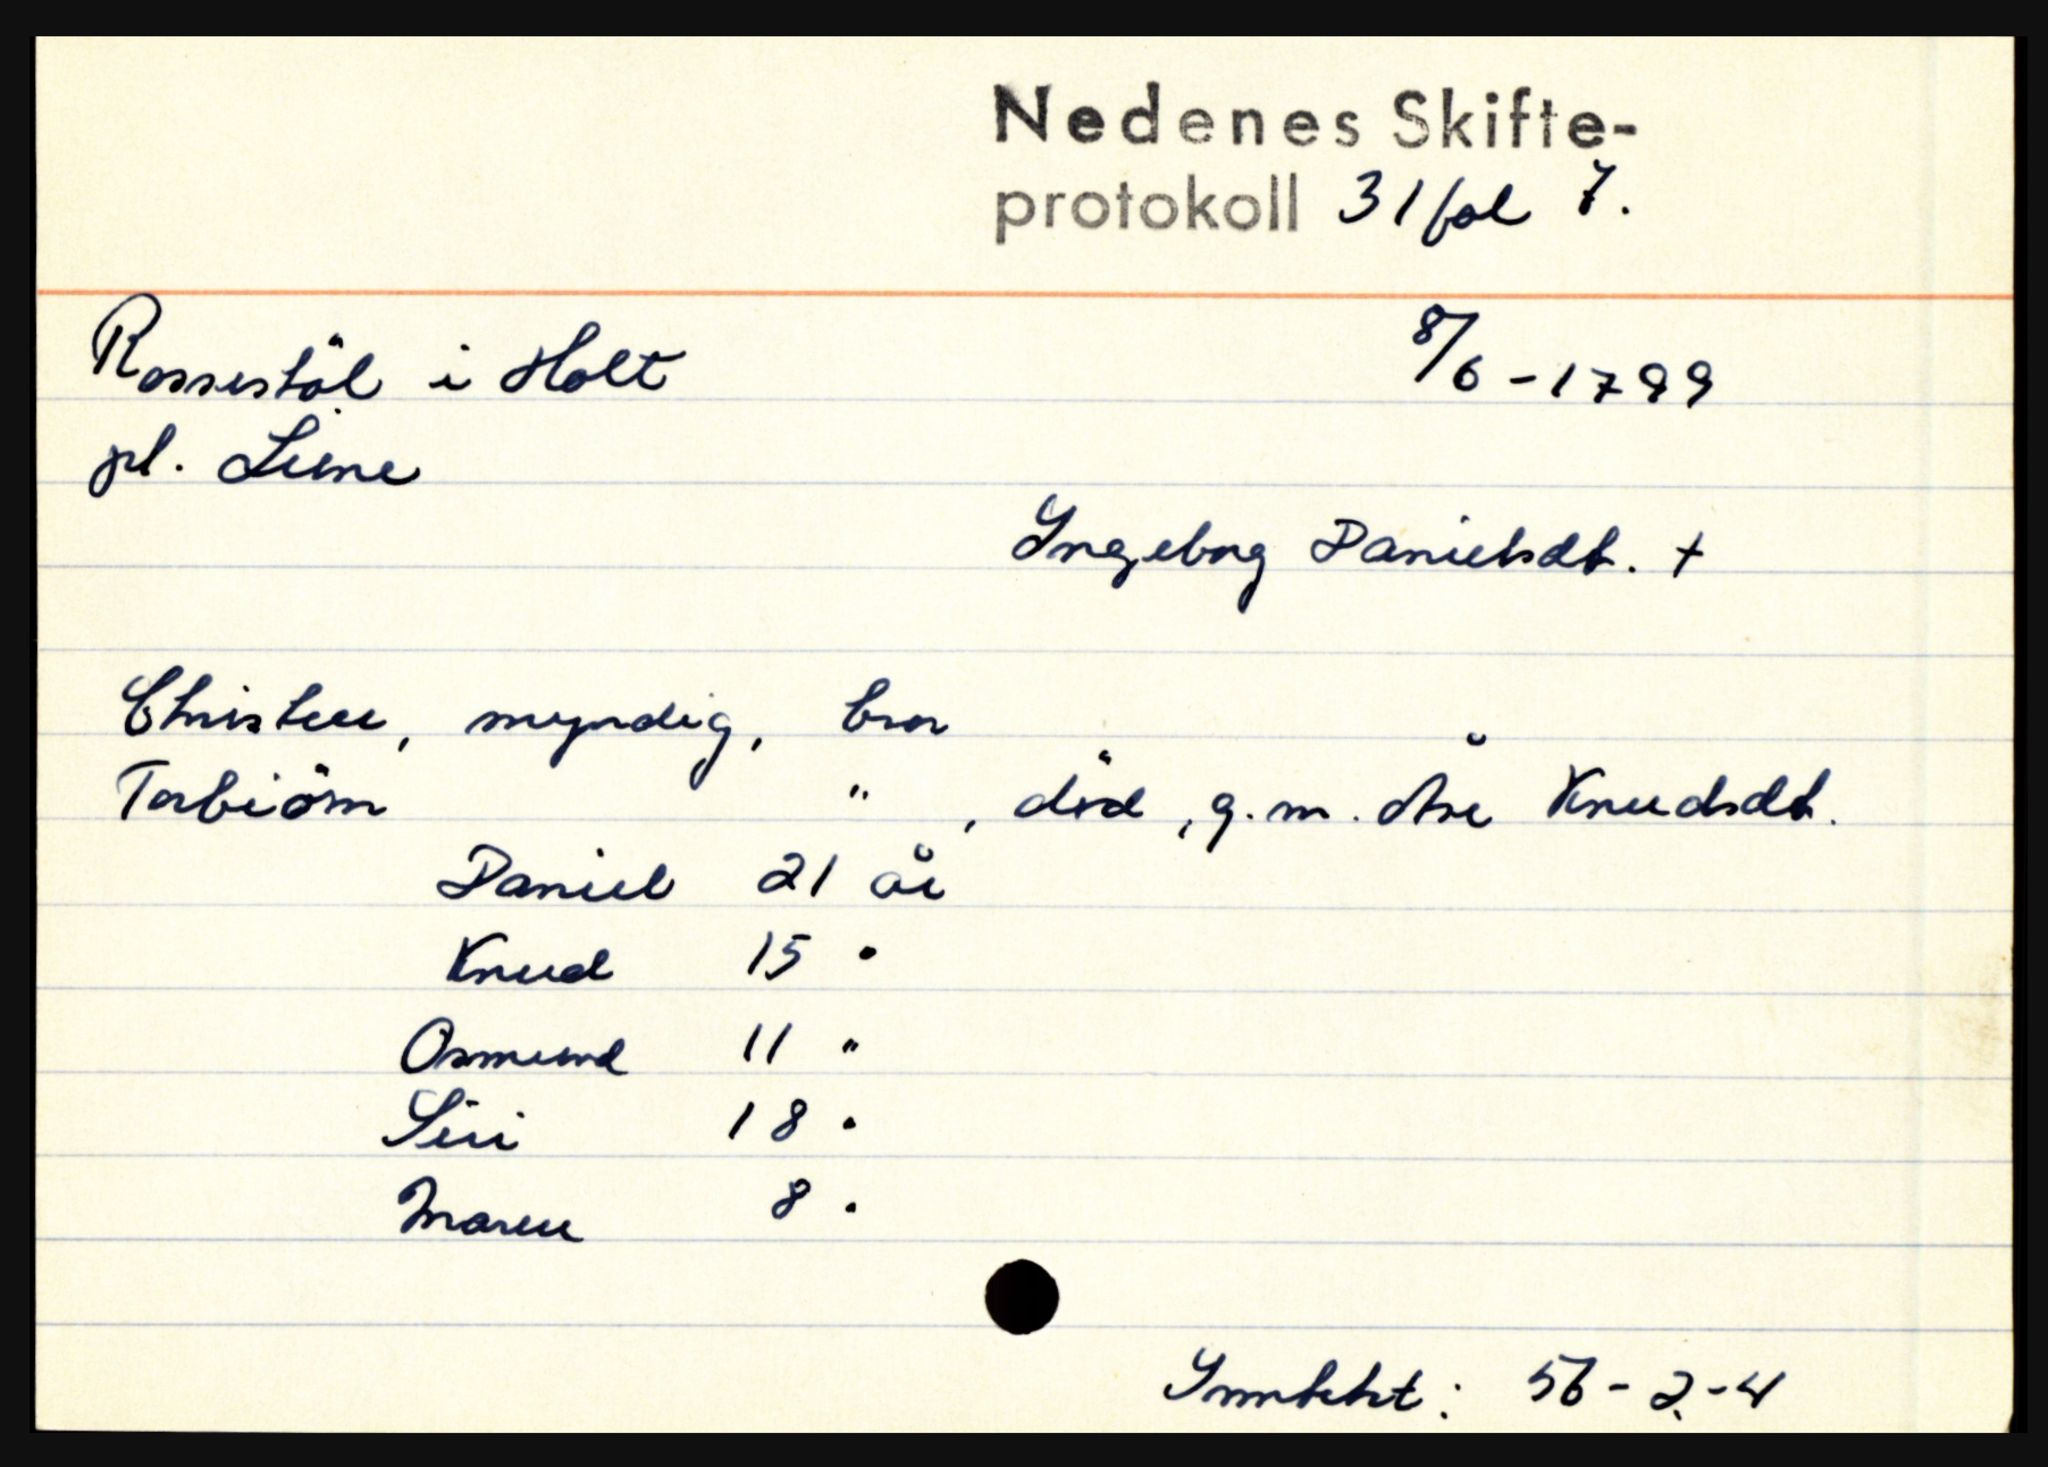 Nedenes Skifte-
protokoll 31 fol 7.
Rossestöl i Holt 8/6 - 1799
pl. Liene
Ingeborg Danielsdt. +
Christen, myndig, bror
Torbiörn " , död, g.m. Åse Knudsdt.
Daniel 21 år
Knud 15 "
Osmund 11 "
Siri 18 "
Maren 8 "
Inntekt: 56 - 2 - 4